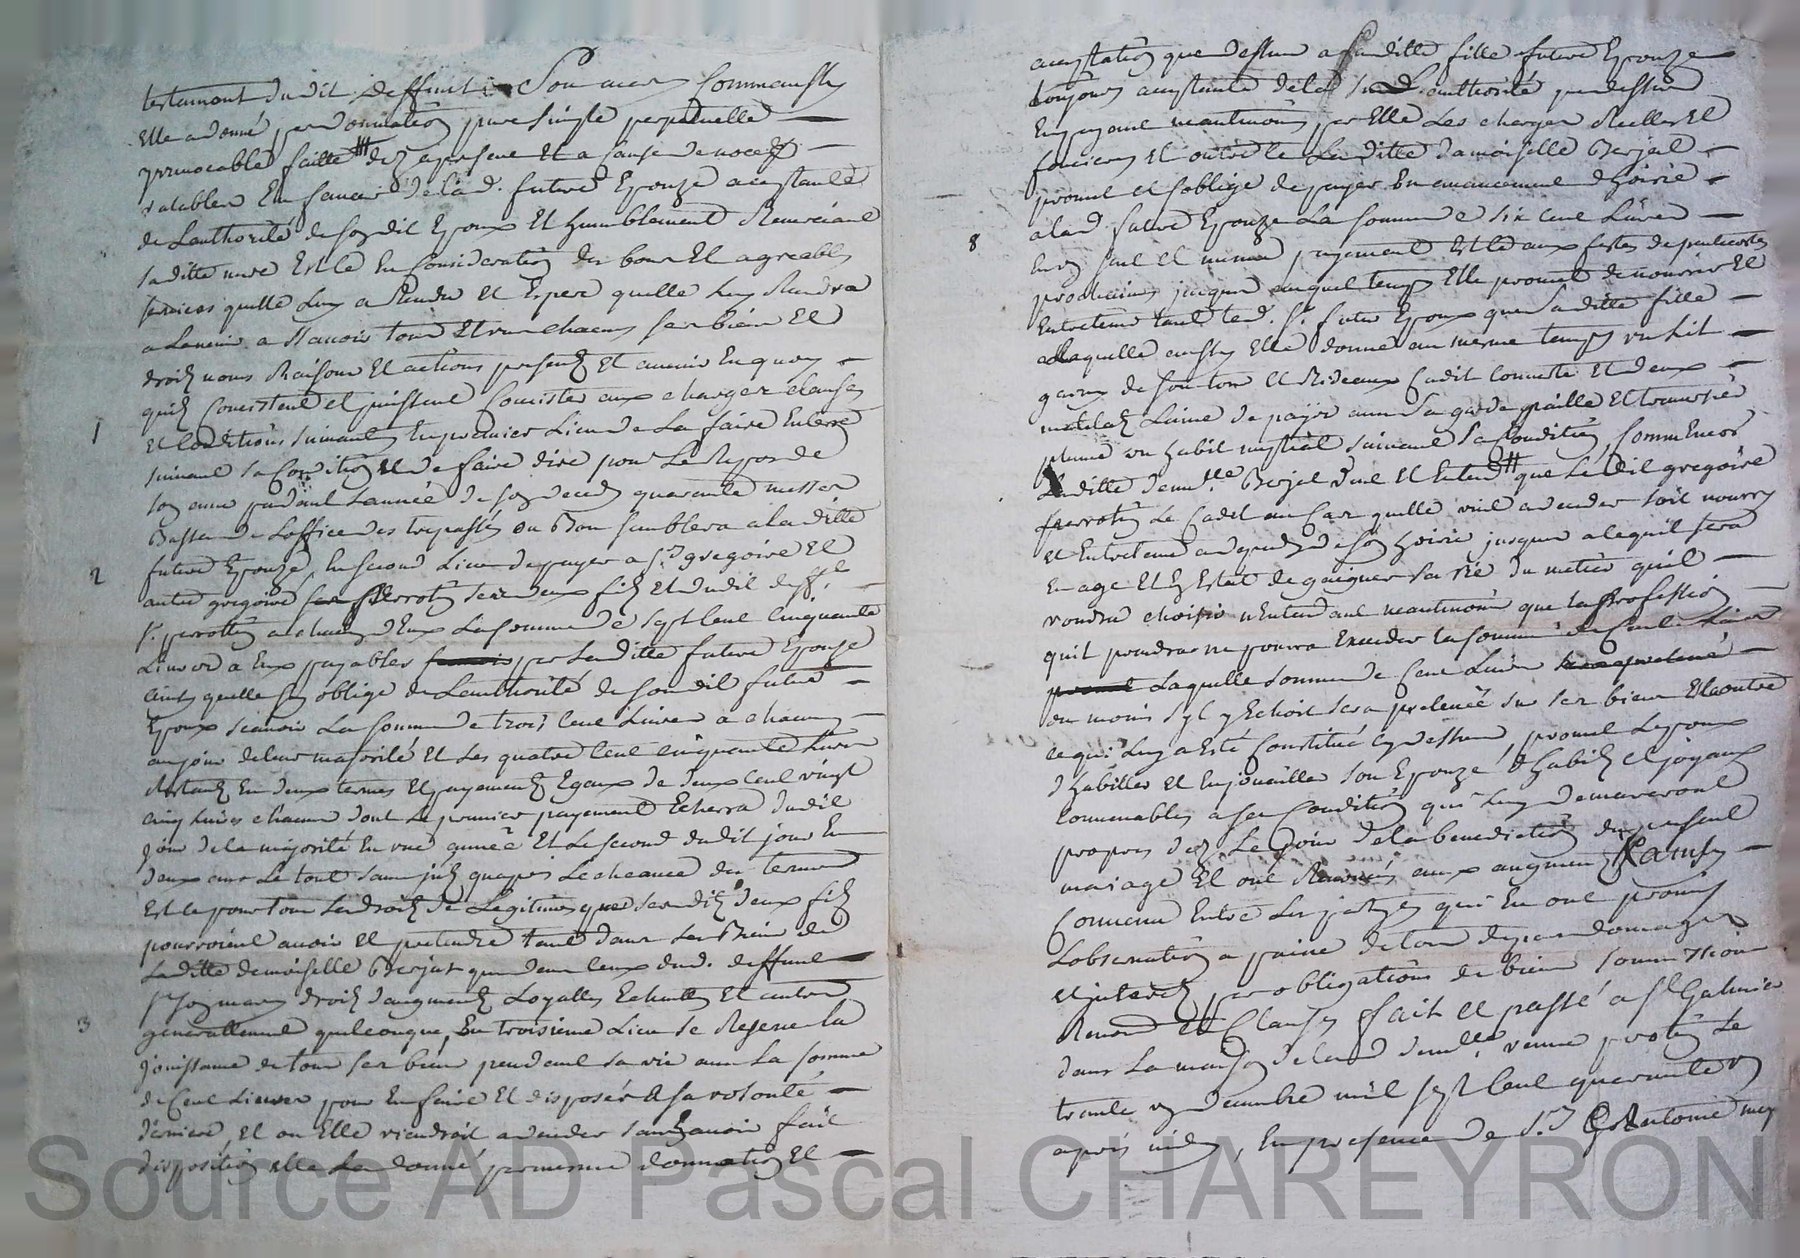 testament dudit deffunt son mary Comme aussy
Elle a donné par donnation pure simple perpetuelle
yrrevocable faitte dez a present Et a Cause de nocez
valables En faveur de la d. future Epouze acceptante
de Lauthorité de sondit Epoux Et humblement Remerciant
sa ditte mere Est le En Consideration des bons Et agreables
services quelle Luy a Rendu Et Espere quelle luy Rendra
a Lavenir a scavoir tous Et un chacuns ses biens Et
droits noms Raisons Et actions presents Et avenir En quoy
quils Concistent et puissent Concister aux charges clauses
1
Et Conditions suivantes En premier Lieu de La faire Enterré
suivant sa Condition Et de faire dire pour Le Repos de
son ame pendant Lannée de son deceds quarante messes
Basses de Loffice des trepassés ou Bon semblera a la ditte
2
future Epouze, En second Lieu de payer a Sr. gregoire Et
autre gregoire perrotin ses deux fils Et dudit deff.t
Sr. perrottin a chacun d'Eux La somme de sept Cent Cinquante
Livres a Eux payables par la ditte future Epouze
ainsy quelle sy oblige de Lauthorité de sondit futur
Epoux scavoir La somme de trois Cent Livres a chacun
au jour de leur majorité Et Les quatre Cent cinquante Livres
Restants En deux termes Et payements Egaux de deux Cent vingt
cinq Livres chacun dont Le premier payement Echerra dudit
jour de la majorité En une année Et Le second dudit jour En
deux ans Le tout sans jnts. quapres Lecheance des termes
Est le pour tous Les droits de Legitimes que sesdits deux fils
pourroient avoir Et pretendre tant dans Les Biens de
La ditte demoiselle Berjat que dans Ceux dud. deffunt
Sr. son mary droits daugments Loyalles Echuttes Et autres
3
generallement quelconque, En troisieme Lieu se Reserve la
jouissance de tous ses biens pendant sa vie avec La somme
de Cent Livres pour En faire Et disposer a sa volonté
derniere, Et ou Elle viendroit a deceder sans avoir fait
disposition elle La donne par mesme donnation Et
acceptation que dessus a sa ditte fille future Epouze
toujours acceptante de la d. authorité que dessus
En payant neantmoins par Elle Les charges Reelles Et
foncieres Et outre ce La ditte damoiselle Berjat
promet et soblige de payer En avancement d'hoirie
a la d. future Epouze La somme de six cent Livres
8
En un seul et mesme payement Est le aux festes de pentecoste
prochaines jusques auquel temps Elle promet de nourrir Et
Entretenir tant led. Sr. futur Epoux que sa ditte fille
a Laquelle aussy Elle donne au mesme temps un Lit
garny de son tour et Rideaux Cadit Couverte Et deux
matelats Laine de pays avec sa garde paille Et traversier
plume un habit nuptial suivant sa Condition, Comme aussy
La ditte dem.lle Berjat veut Et Entend que Le dit gregoire
perrottin Le Cadet au Cas quelle vint a deceder soit nourry
et Entretenu aux depends de son hoirie jusques a ce quil sera
En age Et En Estat de gaigner sa vie du metier quil
voudra choisir nEntendant neantmoins que la Profession
quil prendra ne pourra Exceder la somme de Cent Livres
Laquelle somme de Cent Livres
ou moins syl y Echoit sera prelevée sur ses biens Et outre
ce qui Luy a Esté Constitué cy dessus, promet Lepoux
d'habiller et Enjouailler son Epouze d'habits et joyaux
Convenables a sa Condition qui Luy demeureront
propres dez Le jour de la benediction du present
mariage Et ont Renoncés aux augments, Et ainsy
Convenu Entre Les partyes qui En ont promis
Lobservation a peine de tous depens domages
et interets par obligations de biens soumissions
Renon.ons Et Clauses fait et passé a St Galmier
dans La maison de lad. dem.lle veuve protin Le
trente un decembre mil sept Cent quarante un
apres midy, En presence de Sr. Antoine